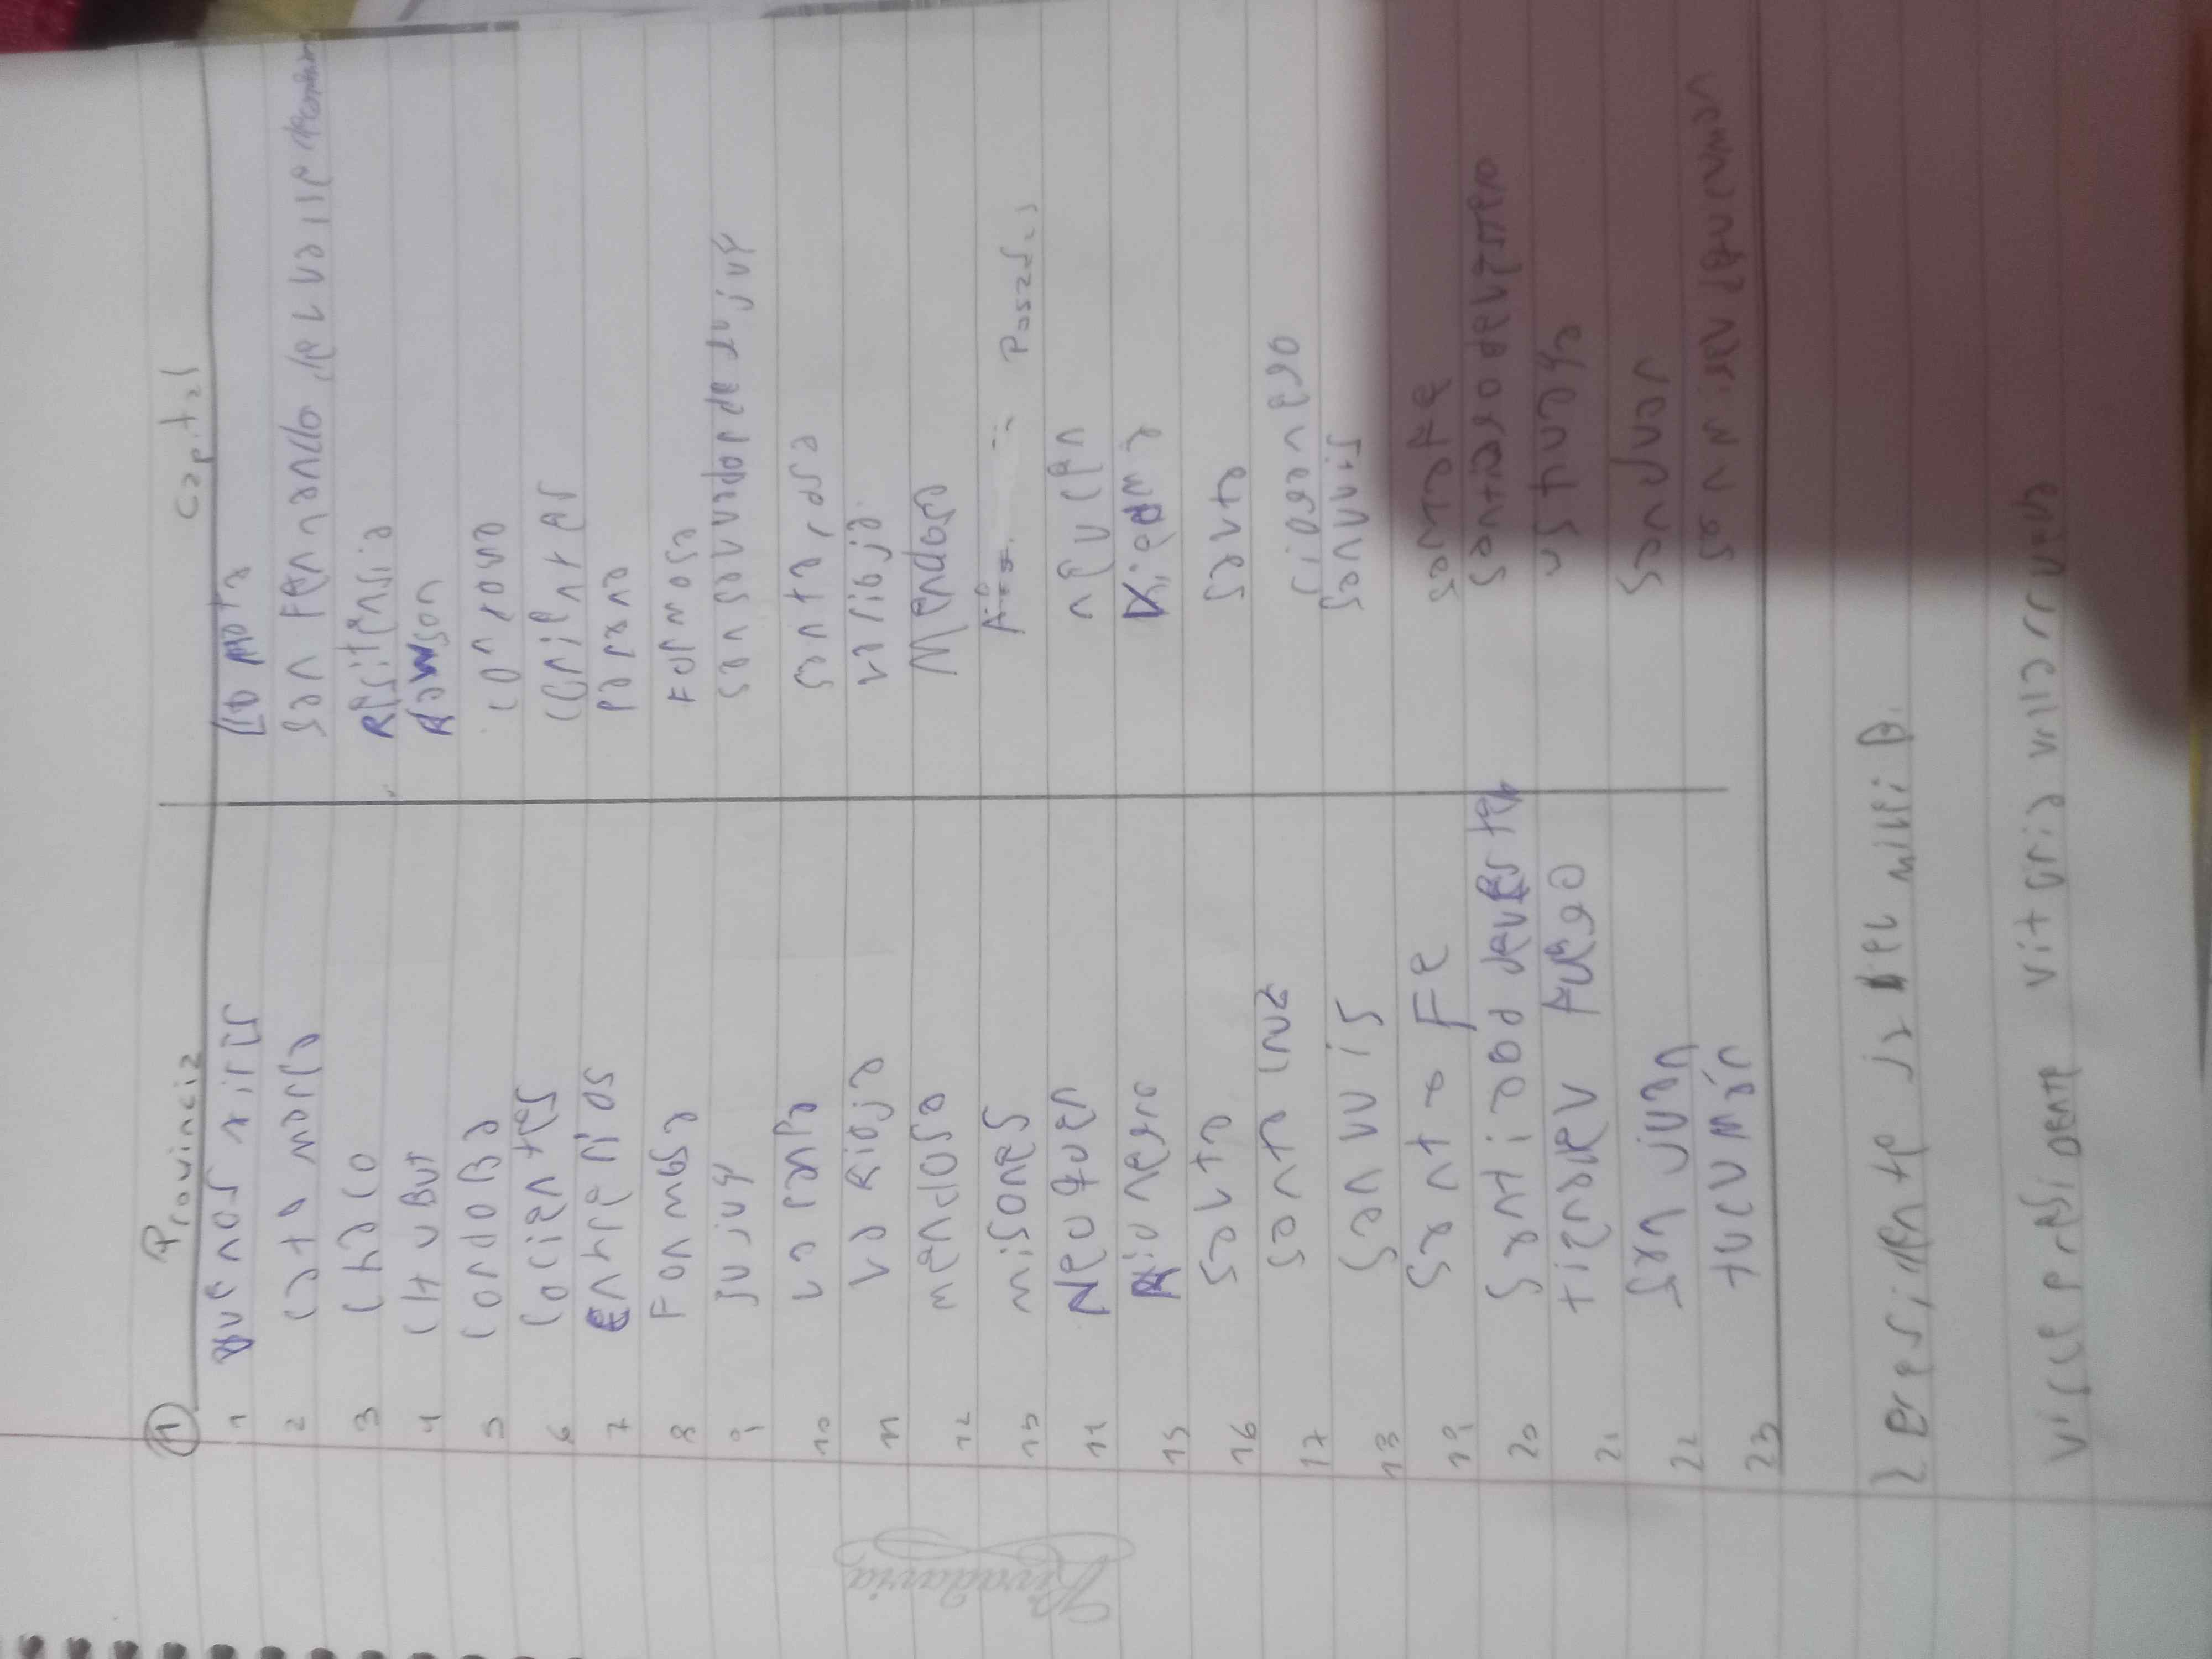 ① Provincia Capital
1 Buenos aires La Plata
2 cata marca San Fernando del valle
3 chaco Resitensia
4 chubut Rawson
5 cordoba cordoba
6 Corientes corientes
7 Entre rios parana
8 Formosa Formosa
9 Jujuy San Salvador de Jujuy
10 La panpa Santa rosa
11 La Rioja La rioja
12 mendosa Mendosa
13 misones Posadas
14 Neoquen neuqen
15 Rio nero Viedma
16 Salta Salta
17 Santa cruz rio
18 San Luis San Luis
19 Santa Fe Santa Fe
20 Santiago del Santiago del
21 tierra Fuego ushuaya
22 San juan San juan
23 tucumán San migel
2 Presidente Javier milei
vise presidente vitoria villarruel
Rivadavia